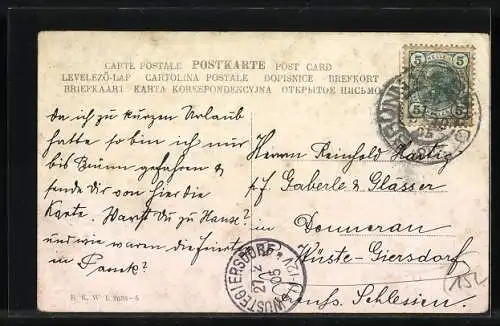 CARTE POSTALE POSTKARTE POST CARD
LEVELEZŐ-LAP CARTOLINA POSTALE DOPISNICE BREFKORT
BRIEFKAART KARTA KORESPONDENCYJNA ОТКРЫТОЕ ПИСЬМО
5 5
5 5
Da ich zu kurzen Urlaub
hatte so bin ich nur
bis Brünn gefahren &
sende dir von hier die
Karte. Warst Du zu Hause?
und wie waren die
in
Herrn Reinhold Hartig
Gaberle & Glässer
in Donnerau
Wüste-Giersdorf
Preuss. Schlesien.
WÜSTEGIERSDORF
27/12
06
152
B. K. W. I.